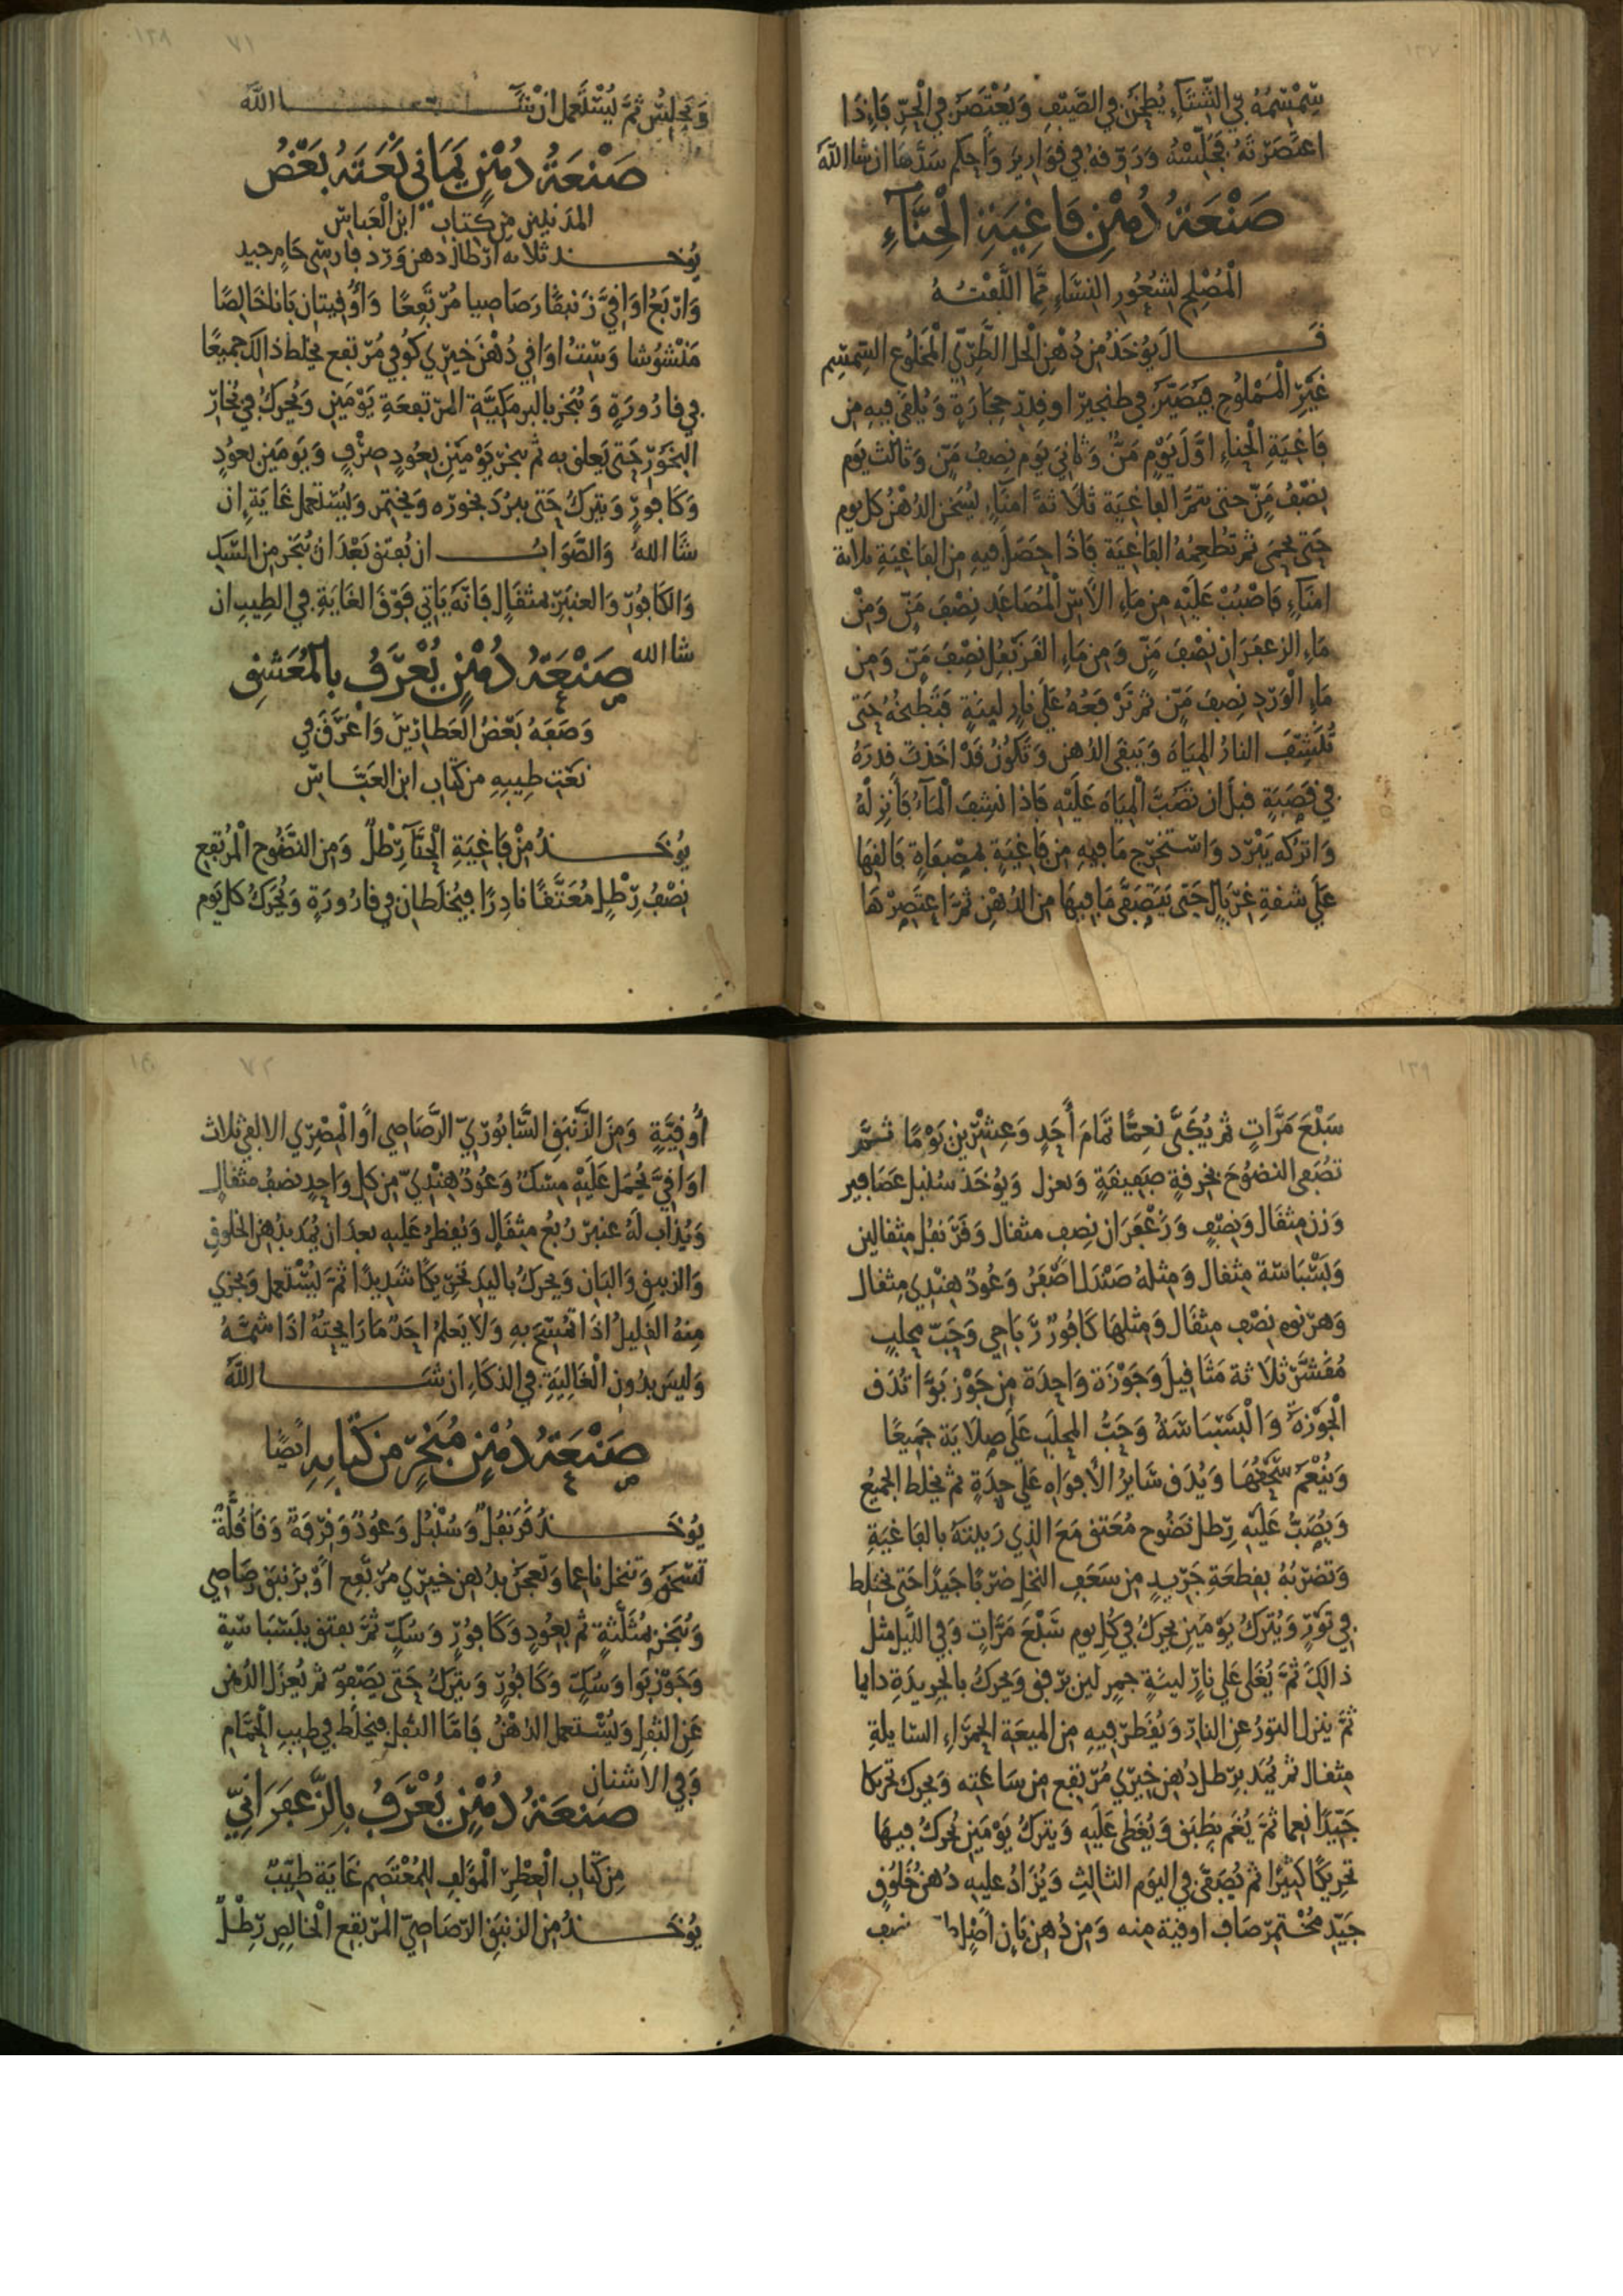 سمسمه في الشتاء يطحن في الصيف ويعتصر في الحر فاذا
اعتصرته فجلسه وروقه في قوارير واحكم سدها ان شا الله
صنعة دهن فاغية الحناء
المصلح لشعور النساء مما اللفته
قال يوخذ من دهن الحل الطري المخلوع السمسم
غير المملوح فيصير في طنجير او قدر حجارة ويلقى فيه من
فاغية الحناء اول يوم من وثاني يوم نصف من وثالث يوم
نصف من حتى يتم الفاغية ثلاثة امناء يسخن الدهن كل يوم
حتى يحمى ثم تطعمه الفاغية فاذا حصل فيه من الفاغية ثلاثة
امناء فاصبب عليه من ماء الاس المصاعد نصف من ومن
ماء الزعفران نصف من ومن ماء القرنفل نصف من ومن
ماء الورد نصف من ثم ترفعه على نار لينة فتطبخه حتى
تنشف النار المياه ويبقى الدهن وتكون قد اخذت قدره
في قصبة قبل ان تصب المياه عليه فاذا نشف الماء فانزله
واتركه يبرد واستخرج ما فيه من فاغية بمصفاة فالقها
على شفة غربال حتى يتصفى ما فيها من الدهن ثم اعتصرها
وتجلس ثم يستعمل ان شا الله
صنعة دهن يماني نعته بعض
المدنيين من كتاب ابن العباس
يوخذ ثلاثه ارطال دهن ورد فارسي خام جيد
واربع اواقي زنبقا رصاصيا مرتفعا واوقيتان بانا خالصا
منشوشا وست اواقي دهن خيري كوفي مرتفع يخلط ذالك جميعا
في قارورة ويبخر بالبرمكية المرتفعة يومين ويحرك في بخار
البخور حتى يعلق به ثم يبخر يومين بعود صرف ويومين بعود
وكافور ويترك حتى يبرد بخوره ويختمر ويستعمل غاية ان
شا الله والصواب ان يفتق بعد ان يبخر من السك
والكافور والعنبر بمثقال فانه ياتي فوق الغاية في الطيب ان
شا الله
صنعة دهن يعرف بالمعشق
وصفه بعض العطارين واعرق في
نعت طيبه من كتاب ابن العباس
يوخذ من فاغية الحنا رطل ومن النضوح المرتفع
نصف رطل معتقا نادرا فيخلطان في قارورة ويحرك كل يوم
سبع مرات ثم يكبى نعما تمام أحد وعشرين يوما ثم
تصفى النضوح بخرقة صفيقة ويعزل ويوخذ سنبل عصافير
وزن مثقال ونصف وزعفران نصف مثقال وقرنفل مثقالين
وبسباسة مثقال ومثله صندل اصفر وعود هندي مثقال
وهرنوه نصف مثقال ومثلها كافور رباحي وحب محلب
مقشر ثلاثة مثاقيل وجوزة واحدة من جوز بوا تدف
الجوزة والبسباسة وحب المحلب على صلاية جميعا
وينعم سحقها ويدف سائر الافواه على حدة ثم يخلط الجميع
ويصب عليه رطل نضوح معتق مع الذي ربيته بالفاغية
وتضربه بقطعة جريد من سعف النخل ضربا جيدا حتى يختلط
في تور ويترك يومين يحرك في كل يوم سبع مرات وفي الليل مثل
ذالك ثم يغلى على نار لينة جمر لين برفق ويحرك بالجريدة دايما
ثم ينزل التور عن النار ويقطر فيه من الميعة الحمراء السايلة
مثقال ثم يمد برطل دهن خيري مرتفع من ساعته ويحرك تحريكا
جيدا نعما ثم يغم بطبق ويغطى عليه ويترك يومين يحرك فيها
تحريكا كثيرا ثم يصفى في اليوم الثالث ويزاد عليه دهن خلوق
جيد مختمر صاف اوقية منه ومن دهن بان نصف
أوقية ومن الزنبق السابوري الرصاصي او المصري الالفي ثلاث
اواقي يحمل عليه مسك وعود هندي من كل واحد نصف مثقال
ويذاب له عنبر ربع مثقال ويقطر عليه بعد ان يمد بدهن الخلوق
والزنبق والبان ويحرك باليد تحريكا شديدا ثم يستعمل ويجزي
منه القليل اذا تمسح به ولا يعلم احد ما رايحته اذا شمه
وليس بدون الغالية في الذكاء ان شا الله
صنعة دهن مبخر من كتابه ايضا
يوخذ قرنفل وسنبل وعود وقرفة وقاقلة
تسحق وتنخل ناعما وتعجن بدهن خيري مرتفع او بزنبق رصاصي
ويبخر بمثلثة ثم بعود وكافور وسك ثم يفتق ببسباسة
وجوز بوا وسك وكافور ويترك حتى يصفو ثم يعزل الدهن
عن الثفل ويستعمل الدهن فاما الثفل فيخلط في طيب الحمام
وفي الاشنان
صنعة دهن يعرف بالزعفراني
من كتاب العطر المولف للمعتصم غاية طيب
يوخذ من الزنبق الرصاصي المرتفع الخالص رطل